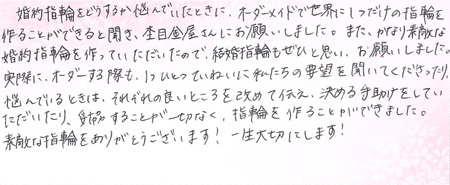 婚約指輪をどうするか悩んでいたときに、オーダーメイドで世界に1つだけの指輪を
作ることができると聞き、杢目金屋さんにお願いしました。また、かなり素敵な
婚約指輪を作っていただいたので、結婚指輪もぜひと思い、お願いしました。
実際に、オーダーする際も、1つひとつていねいに私たちの要望を聞いてくださったり、
悩んでいるときは、それぞれの良いところを改めて伝え、決める手助けをしてい
ただいたり、妥協することが一切なく、指輪を作ることができました。
素敵な指輪をありがとうございます！一生大切にします！